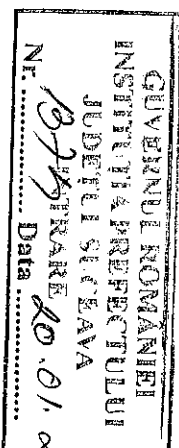 GUVERNUL ROMÂNIEI
INSTITUŢIA PREFECTULUI
JUDEŢUL SUCEAVA
INTRARE
Nr. Data 20.01.